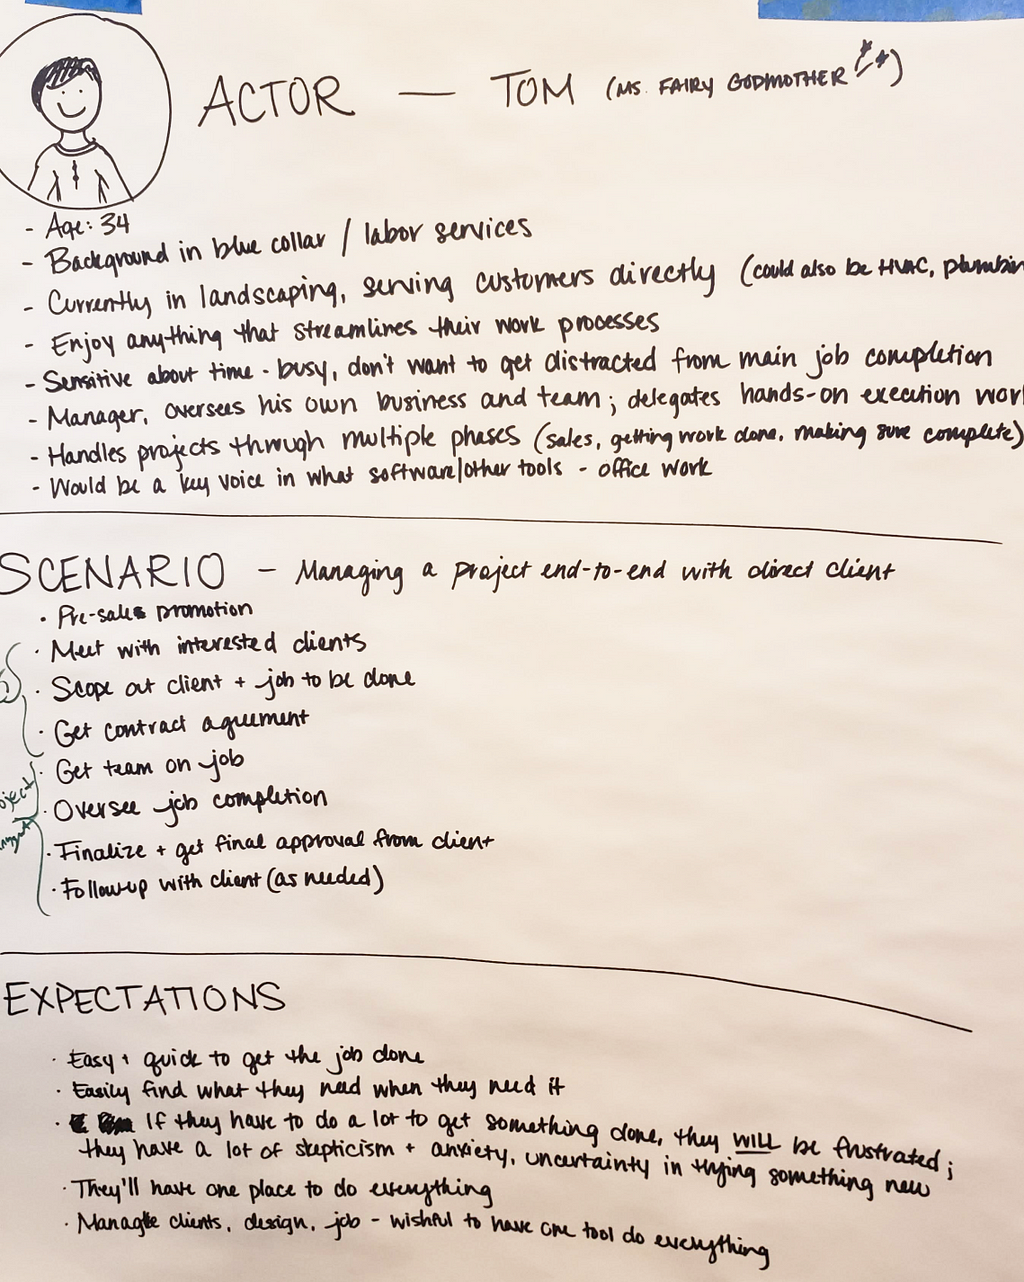 ACTOR — TOM (MS. FAIRY GODMOTHER)
- Age: 34
- Background in blue collar / labor services
- Currently in landscaping, serving customers directly (could also be HVAC, plumbin
- Enjoy anything that streamlines their work processes
- Sensitive about time - busy, don't want to get distracted from main job completion
- Manager, oversees his own business and team; delegates hands-on execution wor
- Handles projects through multiple phases (sales, getting work done, making sure complete)
- Would be a key voice in what software/other tools - office work
SCENARIO - Managing a project end-to-end with direct client
· Pre-sales promotion
· Meet with interested clients
· Scope out client + job to be done
· Get contract agreement
· Get team on job
· Oversee job completion
· Finalize + get final approval from client
· Follow-up with client (as needed)
oject
mgmt
EXPECTATIONS
· Easy + quick to get the job done
· Easily find what they need when they need it
· If they have to do a lot to get something done, they WILL be frustrated;
they have a lot of skepticism + anxiety, uncertainty in trying something new
· They'll have one place to do everything
· Manage clients, design, job - wishful to have one tool do everything